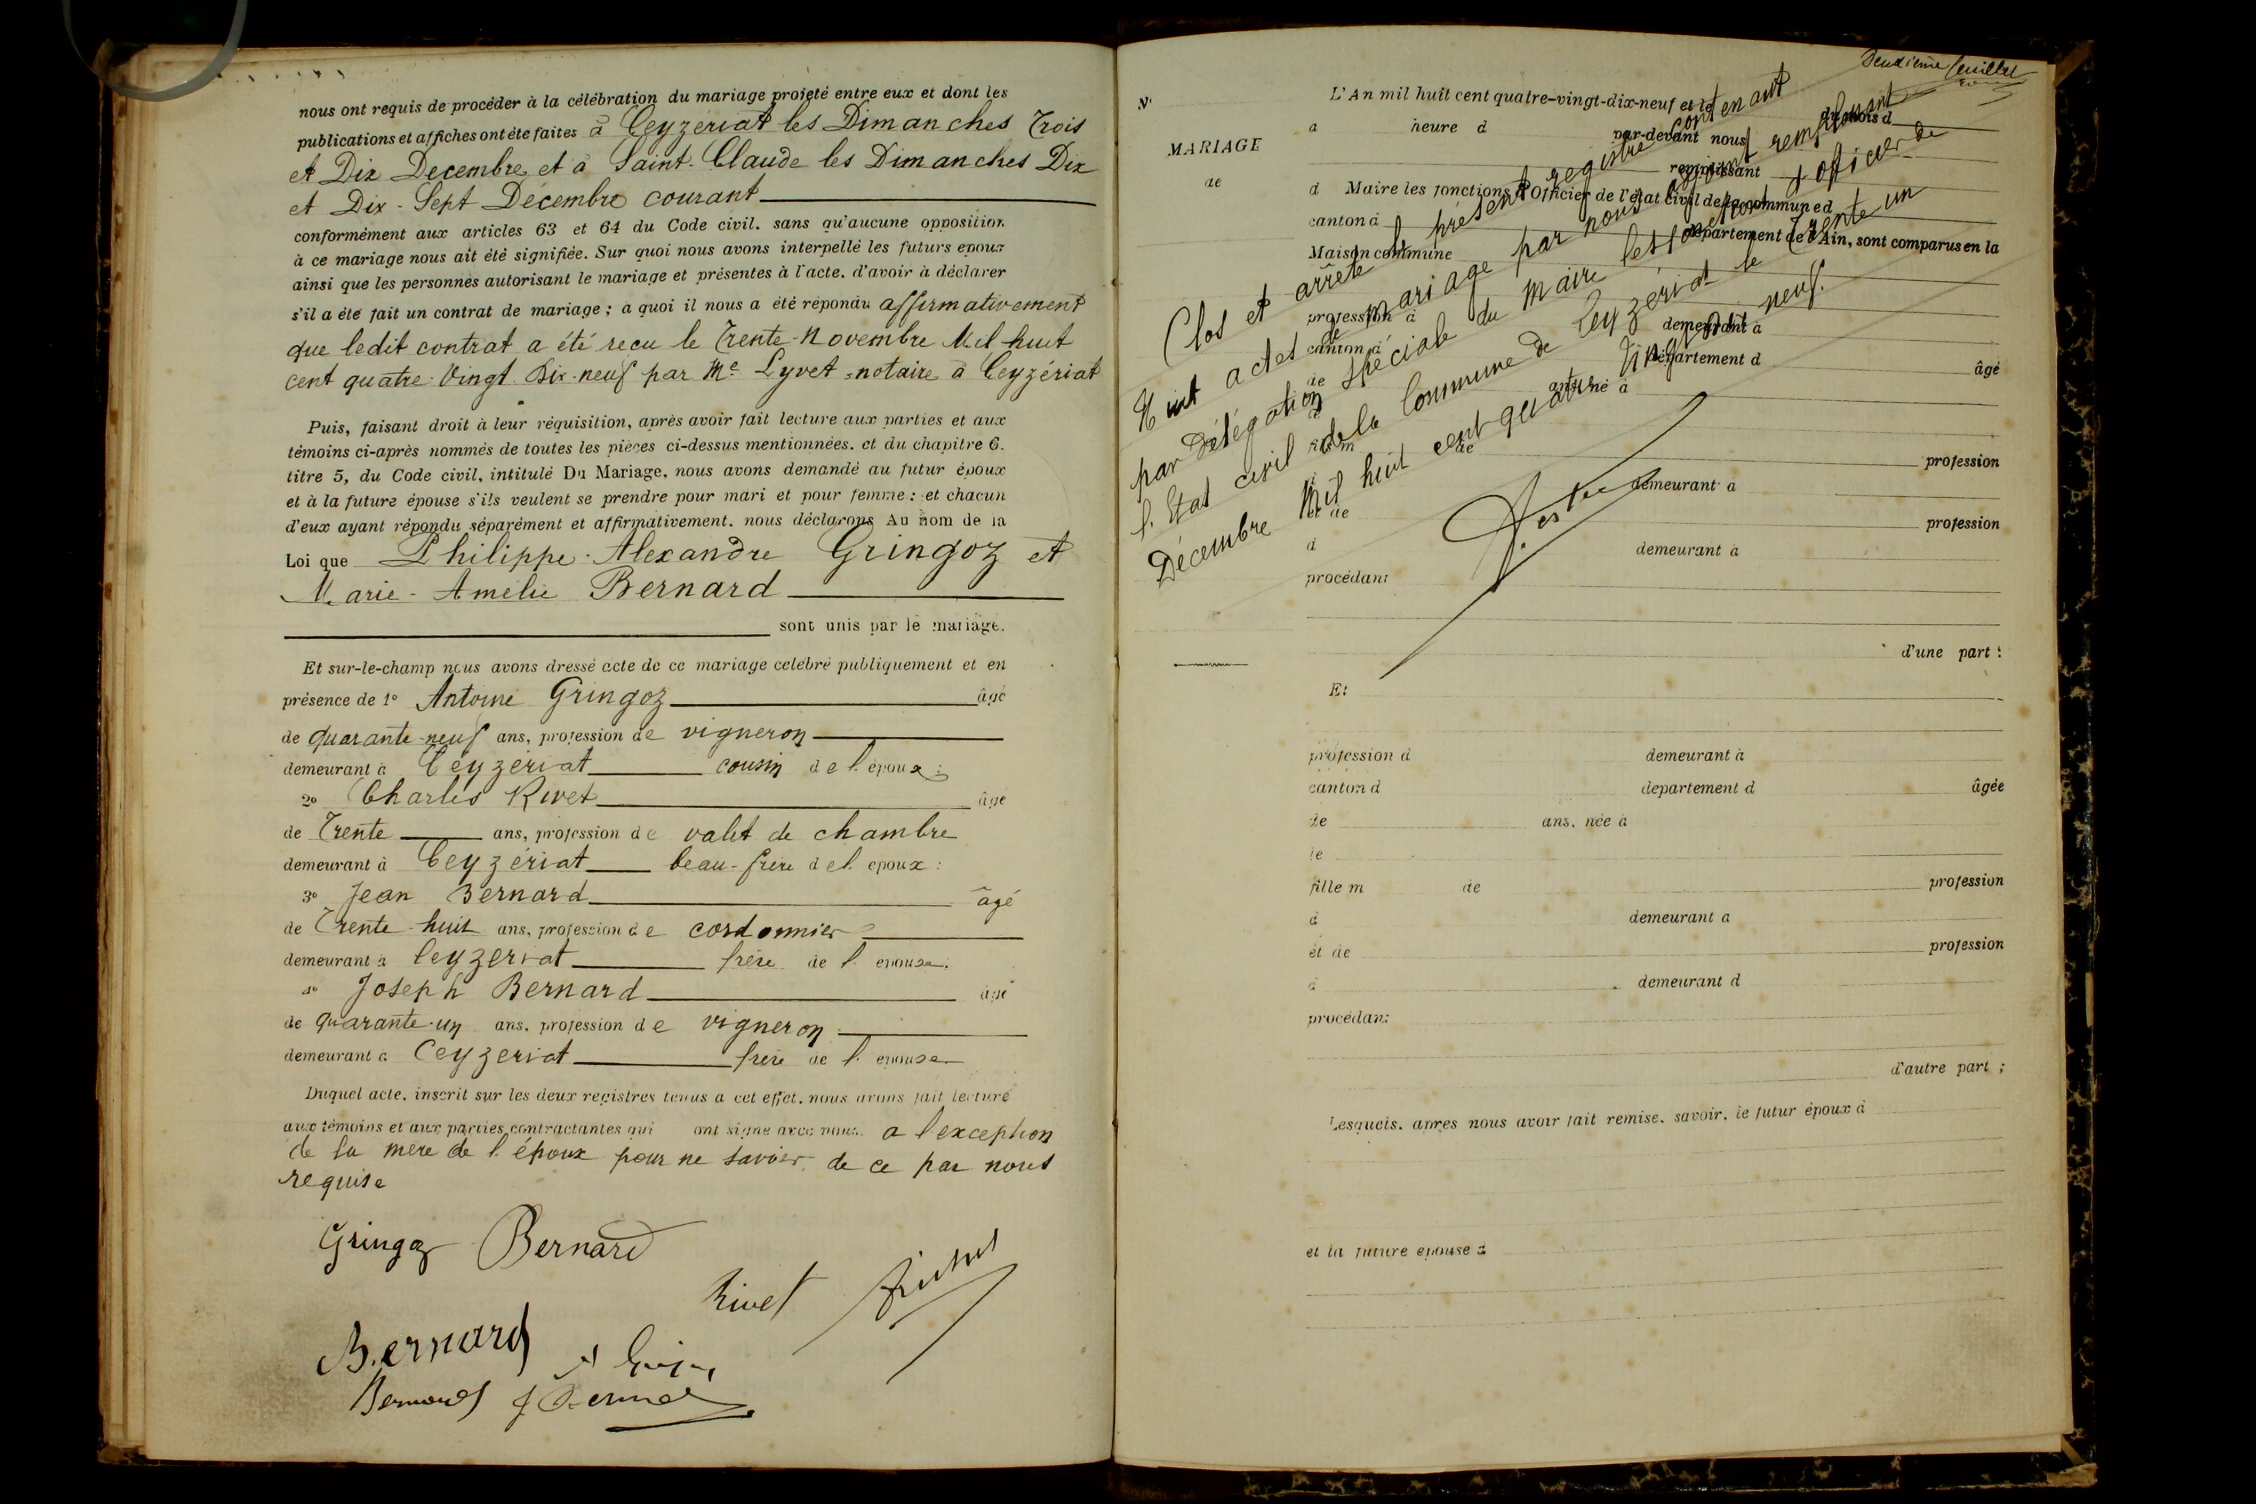 nous ont requis de procéder à la célébration du mariage projeté entre eux et dont les
publications et affiches ont été faites à Ceyzériat les Dimanches Trois
et Dix Décembre et à Saint-Claude les Dimanches Dix
et Dix-Sept Décembre courant
conformément aux articles 63 et 64 du Code civil, sans qu'aucune opposition
à ce mariage nous ait été signifiée. Sur quoi nous avons interpellé les futurs époux
ainsi que les personnes autorisant le mariage et présentes à l'acte, d'avoir à déclarer
s'il a été fait un contrat de mariage ; à quoi il nous a été répondu affirmativement
que ledit contrat a été reçu le Trente Novembre Mil huit
cent quatre-Vingt Dix-neuf par Me Lyvet notaire à Ceyzériat
Puis, faisant droit à leur réquisition, après avoir fait lecture aux parties et aux
témoins ci-après nommés de toutes les pièces ci-dessus mentionnées, et du chapitre 6,
titre 5, du Code civil, intitulé Du Mariage, nous avons demandé au futur époux
et à la future épouse s'ils veulent se prendre pour mari et pour femme ; et chacun
d'eux ayant répondu séparément et affirmativement, nous déclarons Au nom de la
Loi que Philippe-Alexandre Gringoz et
Marie-Amélie Bernard
sont unis par le mariage.
Et sur-le-champ nous avons dressé acte de ce mariage célébré publiquement et en
présence de 1° Antoine Gringoz âgé
de quarante-neuf ans, profession de vigneron
demeurant à Ceyzériat cousin de l'époux ;
2° Charles Rivet âgé
de Trente ans, profession de valet de chambre
demeurant à Ceyzériat beau-frère de l'époux :
3° Jean Bernard âgé
de Trente-huit ans, profession de cordonnier
demeurant à Ceyzeriat frère de l'épouse.
4° Joseph Bernard âgé
de quarante-un ans, profession de vigneron
demeurant à Ceyzeriat frère de l'épouse
Duquel acte, inscrit sur les deux registres tenus à cet effet, nous avons fait lecture
aux témoins et aux parties contractantes qui ont signé avec nous. a l'exception
de la mère de l'époux pour ne savoir, de ce par nous
requise
Gringoz Bernard
Rivet
Bernard
Bernard J Bernard
Deuxième feuillet
N°
MARIAGE
de
L'An mil huit cent quatre-vingt-dix-neuf et le du mois d
à heure d par-devant nous
remplissant
d Maire les fonctions d'Officier de l'état civil de la commune d
canton d département de l'Ain, sont comparus en la
Maison commune
profession d demeurant à
canton d département d âgé
de ans, né à
le
fils m de profession
d demeurant à
et de profession
d demeurant à
procédant
d'une part :
Clos et arrêté le présent registre contenant
Huit actes de mariage par nous adjoint remplissant
par Délégation spéciale du Maire les fonctions d'officier de
l'Etat civil de la Commune de Ceyzériat le Trente un
Décembre Mil huit cent quatre Vingt Dix neuf.
Et
profession d demeurant à
canton d département d âgée
de ans, née à
le
fille m de profession
d demeurant à
et de profession
d demeurant d
procédant
d'autre part ;
Lesquels, après nous avoir fait remise, savoir, le futur époux d
et la future épouse d